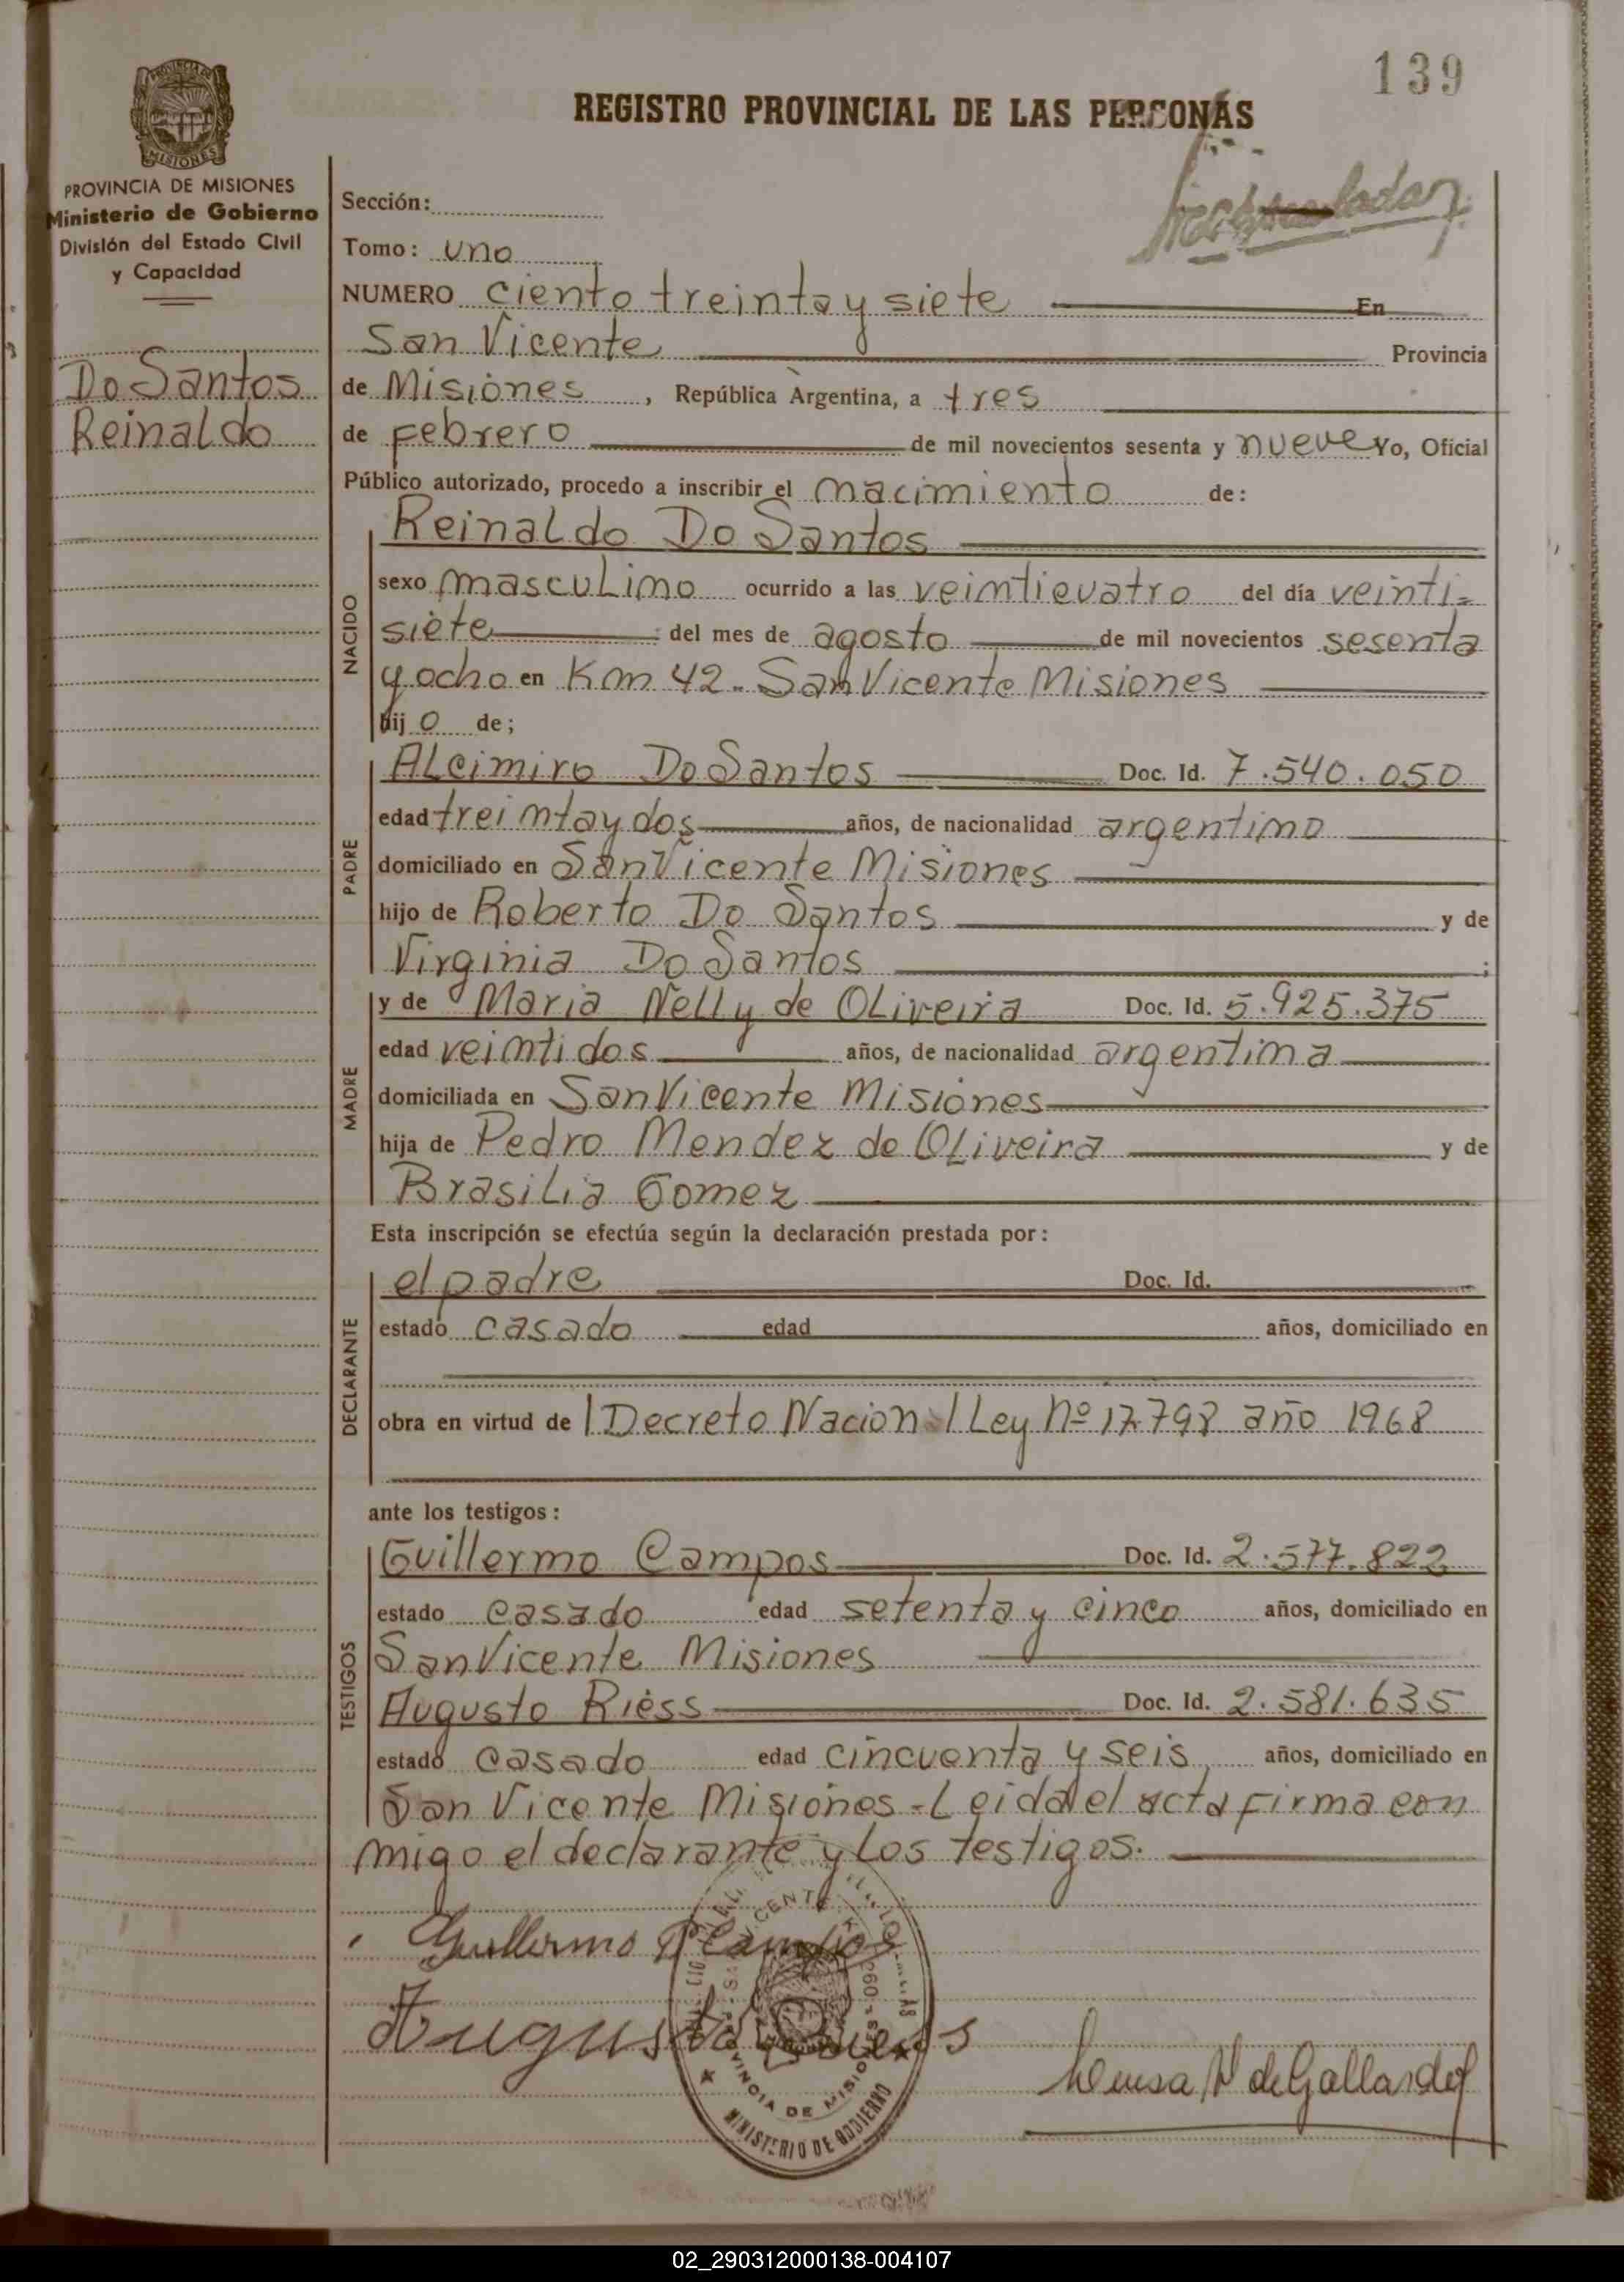 139
REGISTRO PROVINCIAL DE LAS PERSONAS
PROVINCIA DE MISIONES
Ministerio de Gobierno
División del Estado Civil
y Capacidad
Do Santos
Reinaldo
Sección:
Tomo: uno
NUMERO ciento treinta y siete En
San Vicente Provincia
de Misiones, República Argentina, a tres
de Febrero de mil novecientos sesenta y nueve Yo, Oficial
Público autorizado, procedo a inscribir el nacimiento de:
NACIDO
Reinaldo Do Santos
sexo masculino ocurrido a las veinticuatro del día veinti-
siete del mes de agosto de mil novecientos sesenta
y ocho en Km 42. San Vicente Misiones
hijo de;
PADRE
Alcimiro Do Santos Doc. Id. 7.540.050
edad treinta y dos años, de nacionalidad argentino
domiciliado en San Vicente Misiones
hijo de Roberto Do Santos y de
Virginia Do Santos ;
MADRE
y de Maria Nelly de Oliveira Doc. Id. 5.925.375
edad veintidos años, de nacionalidad argentina
domiciliada en San Vicente Misiones
hija de Pedro Mendez de Oliveira y de
Brasilia Gomez
Esta inscripción se efectúa según la declaración prestada por:
DECLARANTE
el padre Doc. Id.
estado casado edad años, domiciliado en
obra en virtud de Decreto Nacional Ley Nº 17.798 año 1968
ante los testigos:
TESTIGOS
Guillermo Campos Doc. Id. 2.577.822
estado casado edad setenta y cinco años, domiciliado en
San Vicente Misiones
Augusto Riess Doc. Id. 2.581.635
estado casado edad cincuenta y seis años, domiciliado en
San Vicente Misiones - Leida el acta firma con
migo el declarante y los testigos.
Guillermo Campos
Augusto Riess
de Gallardo
PROVINCIA DE MISIONES
MINISTERIO DE GOBIERNO
02_290312000138-004107